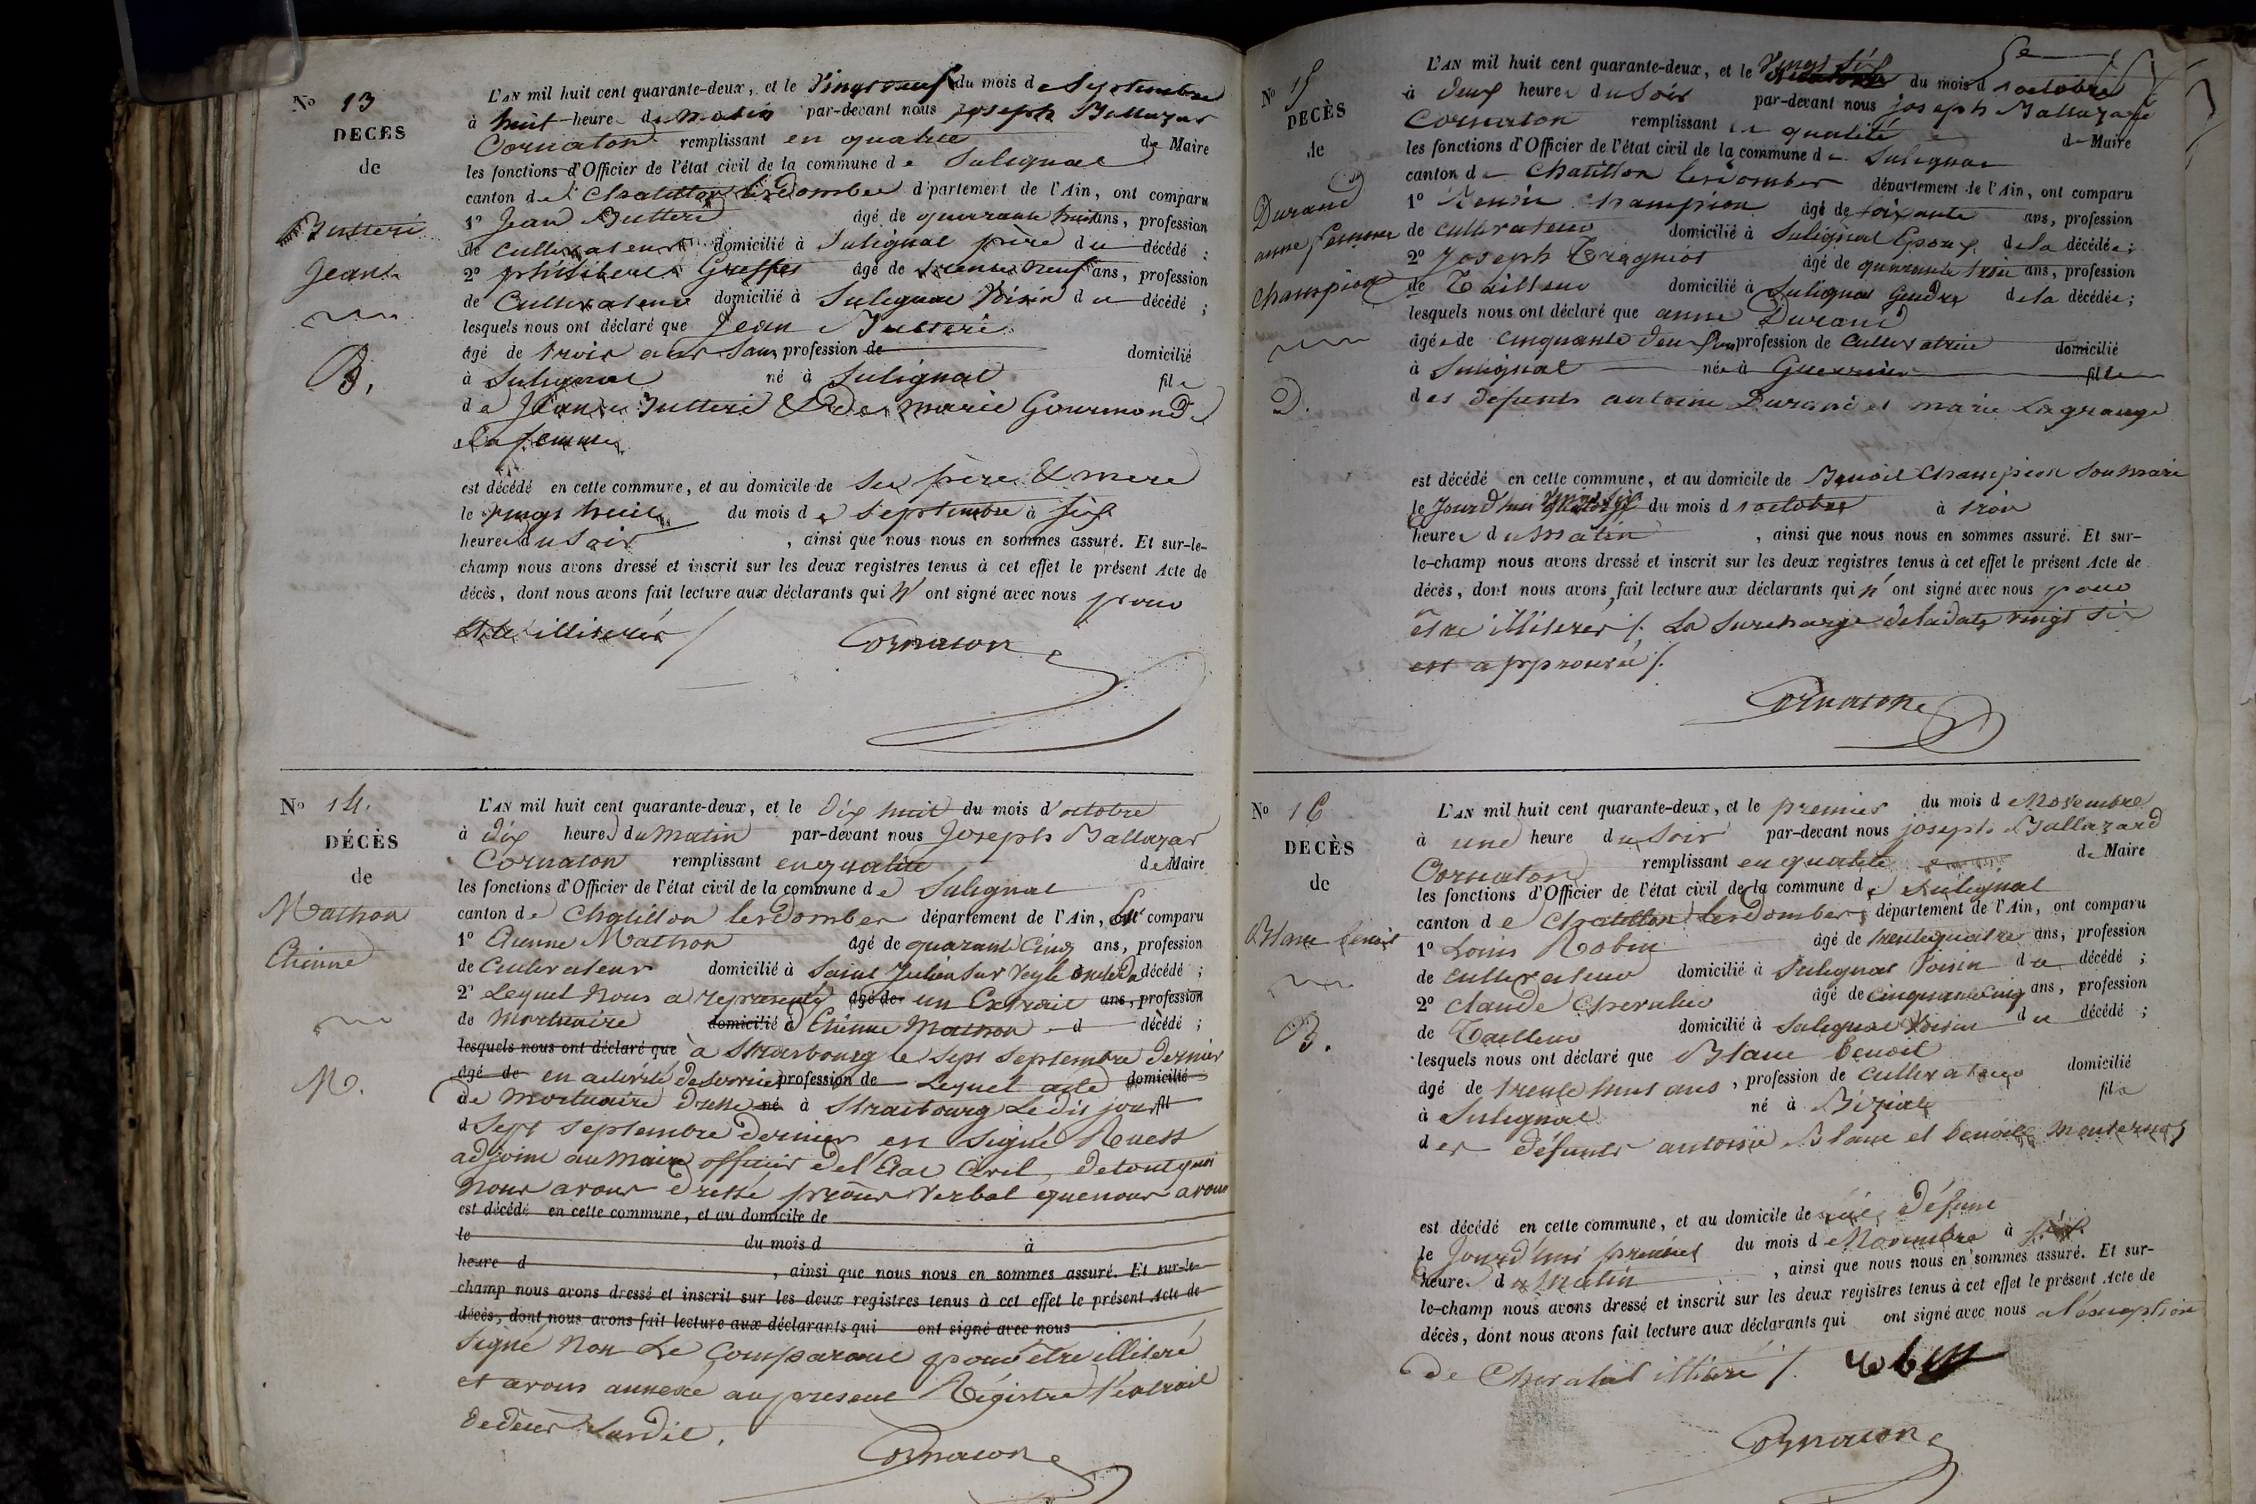 No 13
DECES
de
Butteri
Jean
B.
L'AN mil huit cent quarante-deux, et le vingt neuf du mois de Septembre
à huit heures du matin par-devant nous joseph Ballazar
Cornaton remplissant en qualité de Maire
les fonctions d'Officier de l'état civil de la commune de Sulignat
canton de Chatillon lesDombes département de l'Ain, ont comparu
1º Jean Butteri âgé de quarante huit ans, profession
de cultivateur domicilié à Sulignat père du décédé ;
2º philibert Greffet âgé de trente neuf ans, profession
de Cultivateur domicilié à Sulignat Voisin du décédé ;
lesquels nous ont déclaré que Jean Butteri
âgé de trois ans Sans profession de domicilié
à Sulignat né à Sulignat fils
de Jean Butteri & de marie Gourmond
Sa femme
est décédé en cette commune, et au domicile de Ses père & mere
le vingt huit du mois de Septembre à six
heures du Soir , ainsi que nous nous en sommes assuré. Et sur-le-
champ nous avons dressé et inscrit sur les deux registres tenus à cet effet le présent Acte de
décès, dont nous avons fait lecture aux déclarants qui n' ont signé avec nous pour
être illiterés /
Cornaton
No 14.
DÉCÈS
de
Mathon
Etienne
M.
L'AN mil huit cent quarante-deux, et le Dix huit du mois d'octobre
à dix heures du Matin par-devant nous Joseph Ballazar
Cornaton remplissant en qualité de Maire
les fonctions d'Officier de l'état civil de la commune de Sulignat
canton de Chatillon lesDombes département de l'Ain, est comparu
1º Etienne Mathon âgé de quarante Cinq ans, profession
de Cultivateur domicilié à Saint Julien Sur Veyle oncle du décédé ;
2º Lequel Nous a représenté âgé de un Extrait ans, profession
de Mortuaire domicilié à d'Etienne Mathon d décédé ;
lesquels nous ont déclaré que à Strasbourg le sept Septembre dernier
âgé de en activité de Service profession de Lequel acte domicilié
de Mortuaire dressé né à Strasbourg Le dit jour fil
d Sept Septembre dernier est Signé Ruest
adjoint au Maire officier de l'Etat Civil, de tout quoi
Nous avons dressé procès Verbal que nous avons
est décédé en cette commune, et au domicile de
le du mois d à
heure d , ainsi que nous nous en sommes assuré. Et sur-le-
champ nous avons dressé et inscrit sur les deux registres tenus à cet effet le présent Acte de
décès, dont nous avons fait lecture aux déclarants qui ont signé avec nous
Signé Non Le Comparant pour être illiteré
et avons annexé au present Régistre l'extrait
de décès Susdit.
Cornaton
No 15
DÉCÈS
de
Durand
anne femme
champion
D.
L'AN mil huit cent quarante-deux, et le Vingt Six du mois d'octobre
à deux heures du Soir par-devant nous joseph Ballazard
Cornaton remplissant en qualité de Maire
les fonctions d'Officier de l'état civil de la commune de Sulignat
canton de Chatillon lesdombes département de l'Ain, ont comparu
1º Benoit champion âgé de soixante ans, profession
de cultivateur domicilié à Sulignat Epoux de la décédée ;
2º Joseph Tregniot âgé de quarante trois ans, profession
de Tailleur domicilié à Sulignat Gendre de la décédée ;
lesquels nous ont déclaré que anne Durand
âgée de cinquante deux ans profession de cultivatrice domicilié
à Sulignat née à Guerrier fille
des défunts antoine Durand et marie Lagrange
est décédé en cette commune, et au domicile de Benoit Champion Son mari
le Jourd'hui Vingt Six du mois d'octobre à trois
heures du Matin , ainsi que nous nous en sommes assuré. Et sur-
le-champ nous avons dressé et inscrit sur les deux registres tenus à cet effet le présent Acte de
décès, dont nous avons fait lecture aux déclarants qui n' ont signé avec nous pour
etre illiterer /. La Surcharge de la date vingt Six
est approuvée /.
Cornaton
No 16
DECÈS
de
Blanc benoit
B.
L'AN mil huit cent quarante-deux, et le premier du mois de Novembre
à une heure du Soir par-devant nous joseph Ballazard
Cornaton remplissant en qualité de Maire
les fonctions d'Officier de l'état civil de la commune de Sulignat
canton de Chatillon lesDombes, département de l'Ain, ont comparu
1º Louis Robin âgé de trente quatre ans, profession
de cultivateur domicilié à Sulignat Voisin du décédé ;
2º claude Chevalier âgé de cinquante cinq ans, profession
de Tailleur domicilié à Sulignat Voisin du décédé ;
lesquels nous ont déclaré que Blanc benoit
âgé de trente huit ans , profession de cultivateur domicilié
à Sulignat né à Biziat fils
des défunts antoine Blanc et benoite Monternoz
est décédé en cette commune, et au domicile de défunt
le Jourd'hui premier du mois de Novembre à six
heures du Matin , ainsi que nous nous en sommes assuré. Et sur-
le-champ nous avons dressé et inscrit sur les deux registres tenus à cet effet le présent Acte de
décès, dont nous avons fait lecture aux déclarants qui ont signé avec nous a l'exception
de Chevalier illiteré /.
Cornaton